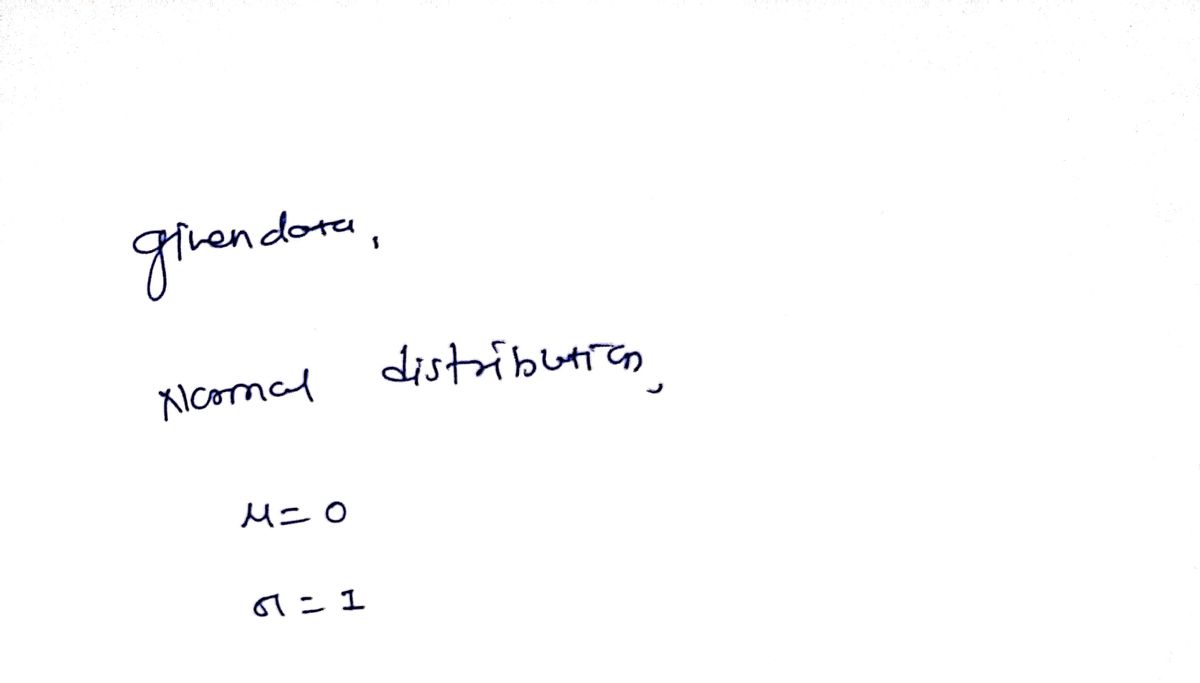 given data,
Normal distribution,
μ = 0
σ = 1